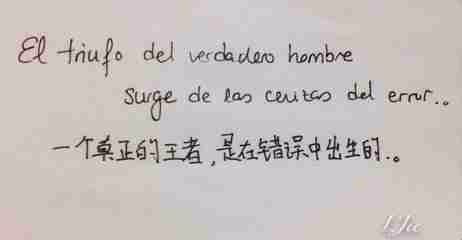 El triufo del verdadero hombre
surge de las cenizas del error..
一个真正的王者,是在错误中出生的.。